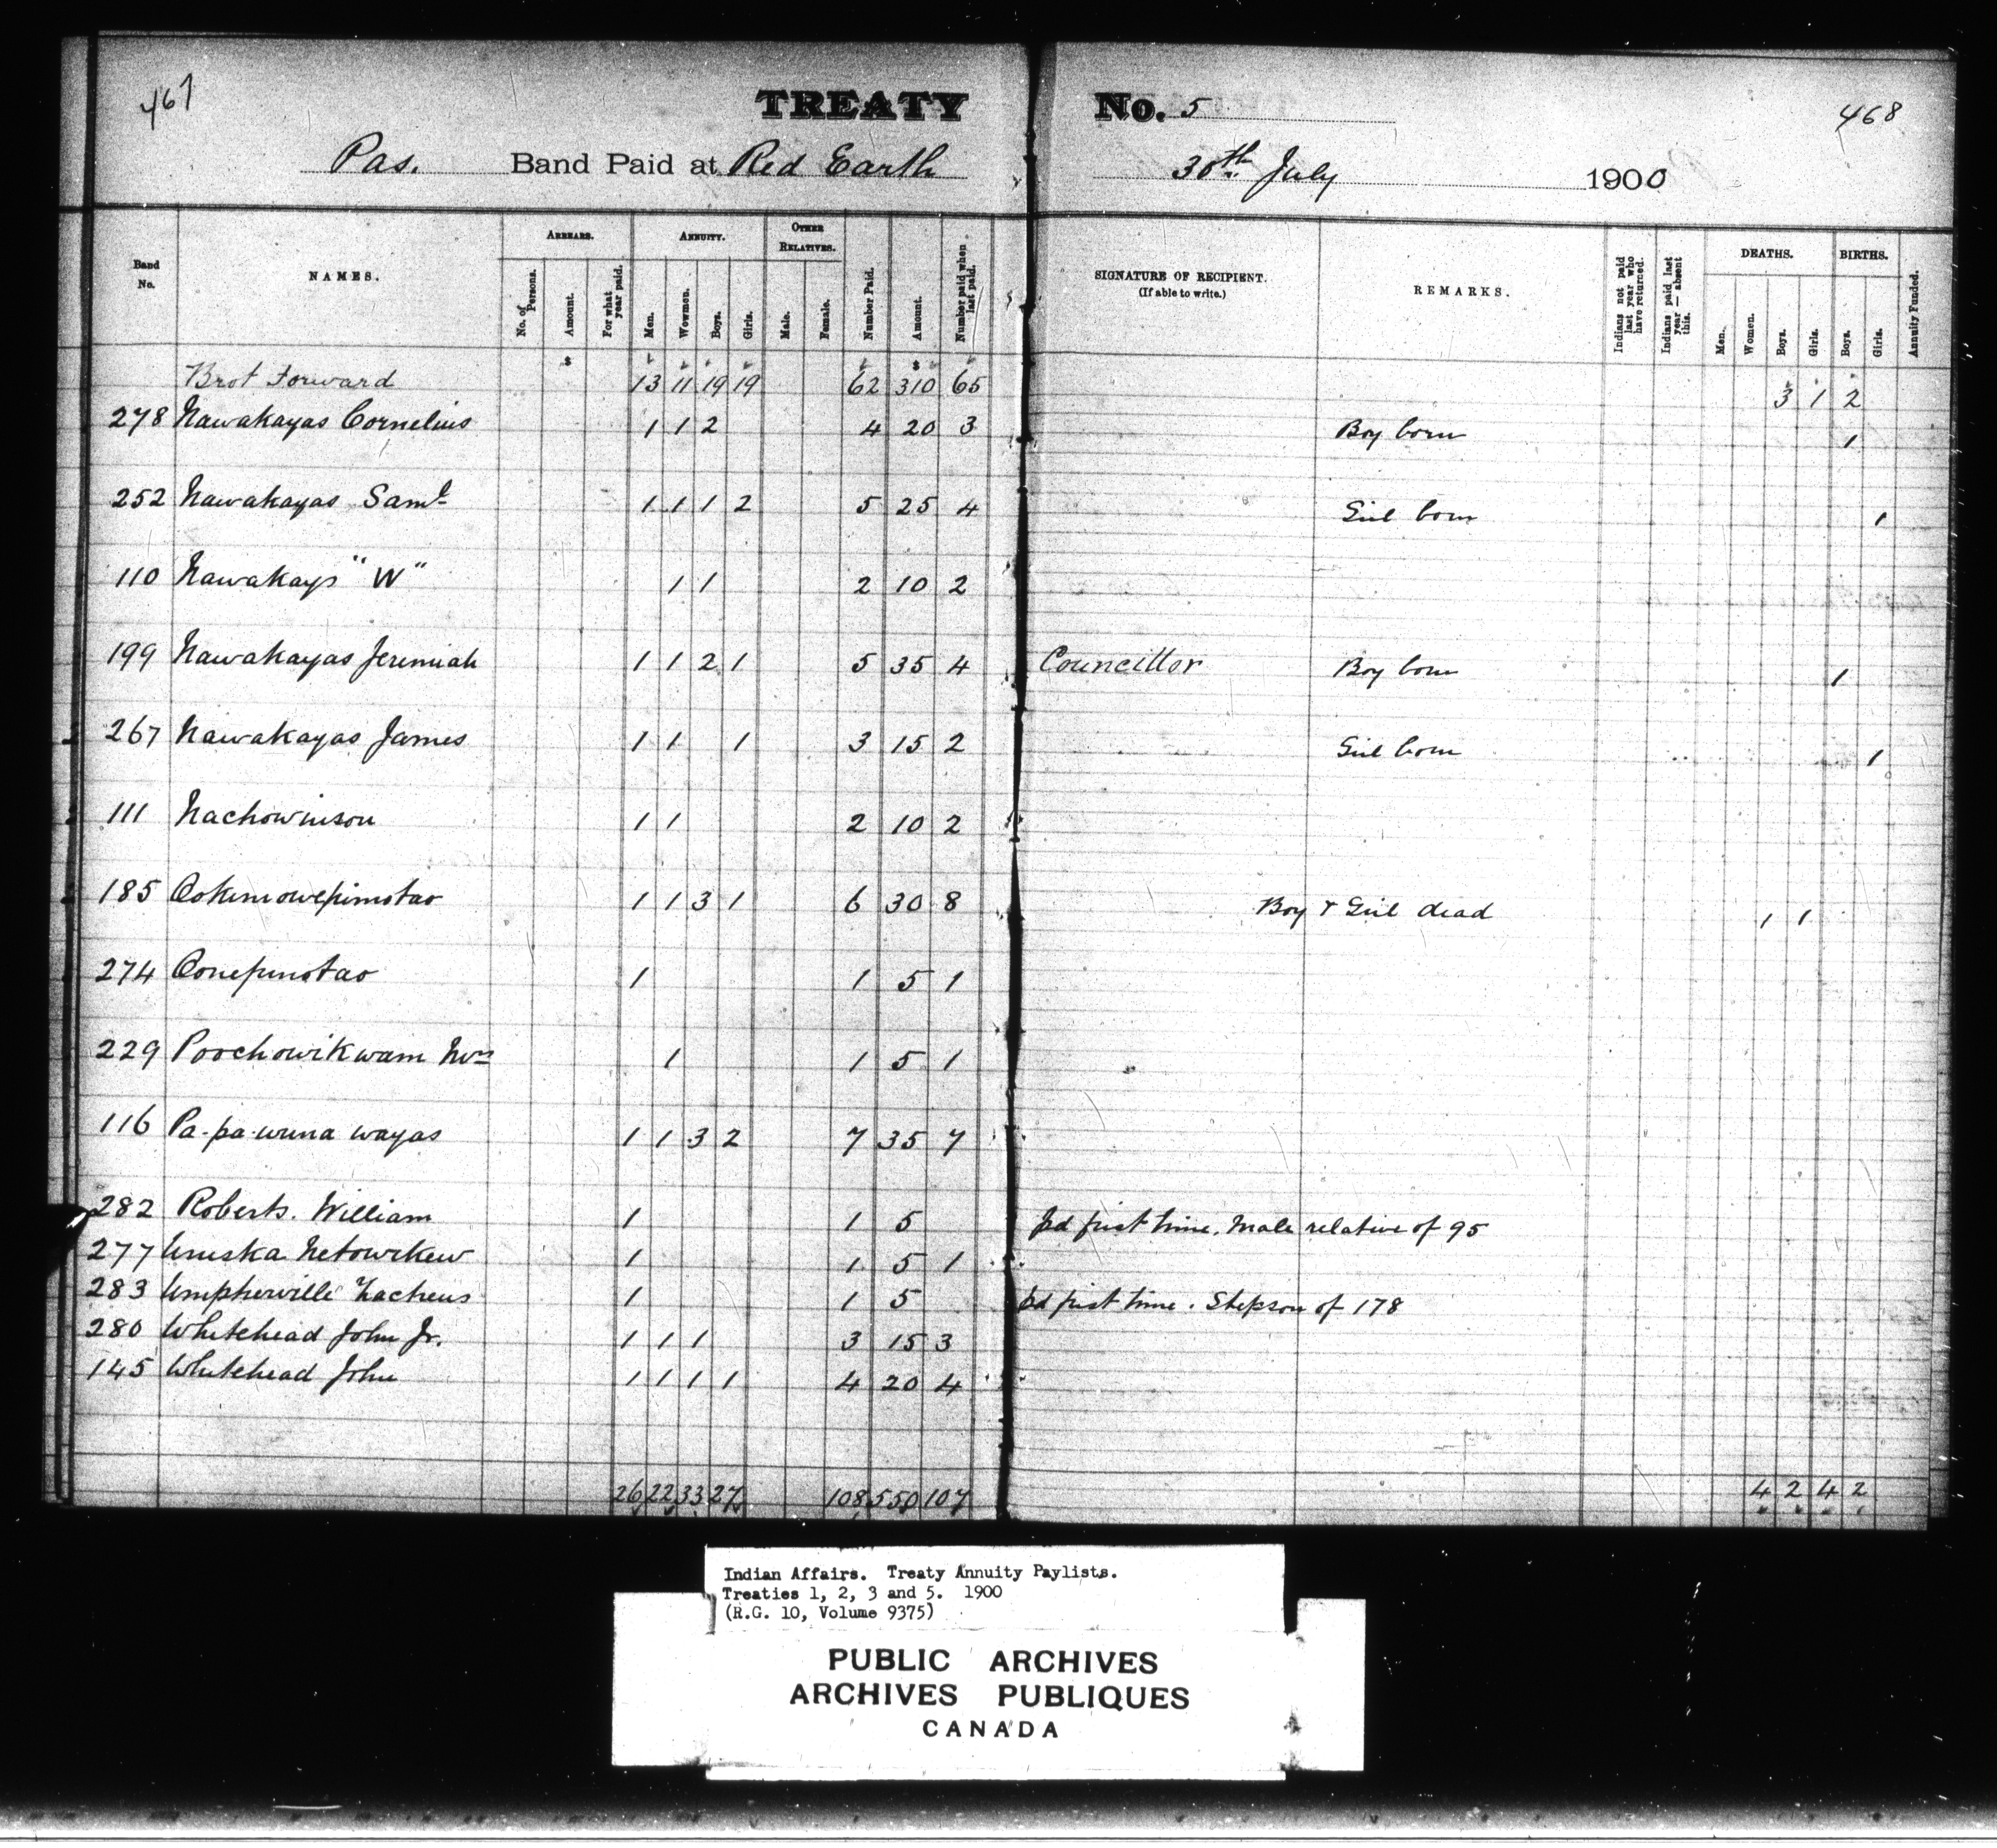 467
TREATY No. 5
468
Pas. Band Paid at Red Earth 30th July 1900
Band No.
NAMES.
ARREARS.
No. of Persons.
Amount.
For what year paid.
ANNUITY.
Men.
Women.
Boys.
Girls.
OTHER RELATIVES.
Male.
Female.
Number Paid.
Amount.
Number paid when last paid.
SIGNATURE OF RECIPIENT.
(If able to write.)
REMARKS.
Indians not paid last year who have returned.
Indians paid last year — absent this.
DEATHS.
Men.
Women.
Boys.
Girls.
BIRTHS.
Boys.
Girls.
Annuity Funded.
Brot Forward 13 11 19 19 62 310 65 3 1 2
278 Nawakayas Cornelius 1 1 2 4 20 3 Boy born 1
252 Nawakayas Saml 1 1 1 2 5 25 4 Girl born 1
110 Nawakays "W" 1 1 2 10 2
199 Nawakayas Jeremiah 1 1 2 1 5 35 4 Councillor Boy born 1
267 Nawakayas James 1 1 1 3 15 2 Girl born 1
111 Nachowinson 1 1 2 10 2
185 1 1 3 1 6 30 8 Boy & Girl dead 1 1
274 1 1 5 1
229 Poochowikwam 1 1 5 1
116 Pa-pa-wuna wayas 1 1 3 2 7 35 7
282 Roberts. William 1 1 5 pd first time. Male relative of 95
277 1 1 5 1
283 Umpherville Zacheus 1 1 5 pd first time. Stepson of 178
280 Whitehead John Jr. 1 1 1 3 15 3
145 Whitehead John 1 1 1 1 4 20 4
26 22 33 27 108 550 107 4 2 4 2
Indian Affairs. Treaty Annuity Paylists.
Treaties 1, 2, 3 and 5. 1900
(R.G. 10, Volume 9375)
PUBLIC ARCHIVES
ARCHIVES PUBLIQUES
CANADA